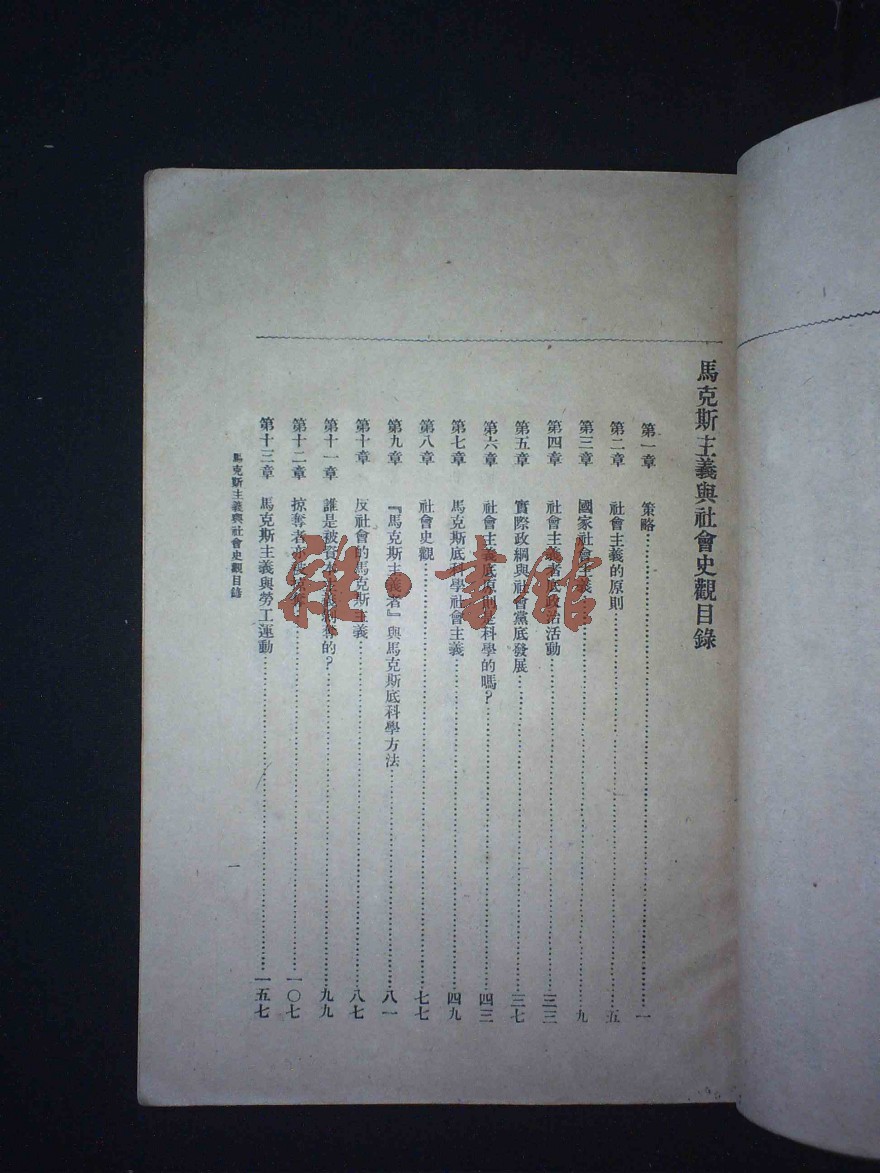 馬克斯主義與社會史觀目錄
第一章 策略……一
第二章 社會主義的原則……五
第三章 國家社會主義……九
第四章 社會主義者底政治活動……三三
第五章 實際政綱與社會黨底發展……三七
第六章 社會主義底原則是科學的嗎?……四三
第七章 馬克斯底科學社會主義……四九
第八章 社會史觀……七七
第九章 『馬克斯主義者』與馬克斯底科學方法……八一
第十章 反社會的馬克斯主義……八七
第十一章 誰是被資本主義剝奪的?……九九
第十二章 掠奪者亦被……一〇七
第十三章 馬克斯主義與勞工運動……一五七
馬克斯主義與社會史觀目錄
一
雜·書館